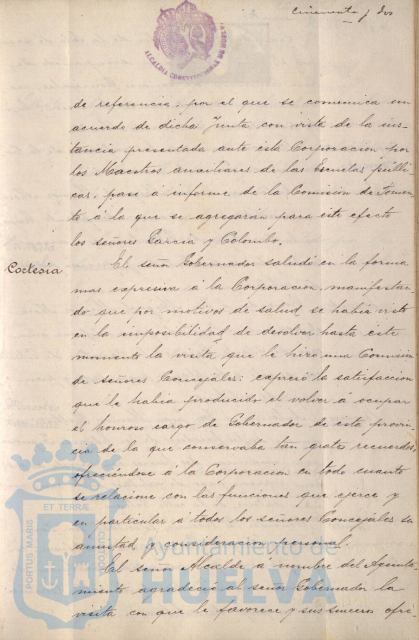 cincuenta y dos
ALCALDIA CONSTITUCIONAL DE HUELVA
de referencia, por el que se comunica un
acuerdo de dicha Junta con vista de la ins-
tancia presentada ante esta Corporacion por
los Maestros auxiliares de las Escuelas públi-
cas, pase á informe de la Comision de Fomen-
to á la que se agregarán para este efecto
los señores Garcia y Colombo.
Cortesia
El señor Gobernador saludó en la forma
mas expresiva á la Corporacion, manifestan-
do que por motivos de salud se habia visto
en la imposibilidad de devolver hasta este
momento la visita que le hizo una Comision
de señores Concejales: expresó la satisfaccion
que le habia producido el volver á ocupar
el honroso cargo de Gobernador de esta provin-
cia de la que conservaba tan gratos recuerdos,
ofreciéndose á la Corporacion en todo cuanto
se relacione con las funciones que ejerce y
en particular á todos los señores Concejales su
amistad y consideracion personal.
El señor Alcalde á nombre del Ayunta-
miento agradeció al señor Gobernador la
visita con que le favorece y sus sinceros ofre
PORTUS MARIS
ET TERRÆ
CUSTODIA
Ayuntamiento de
HUELVA